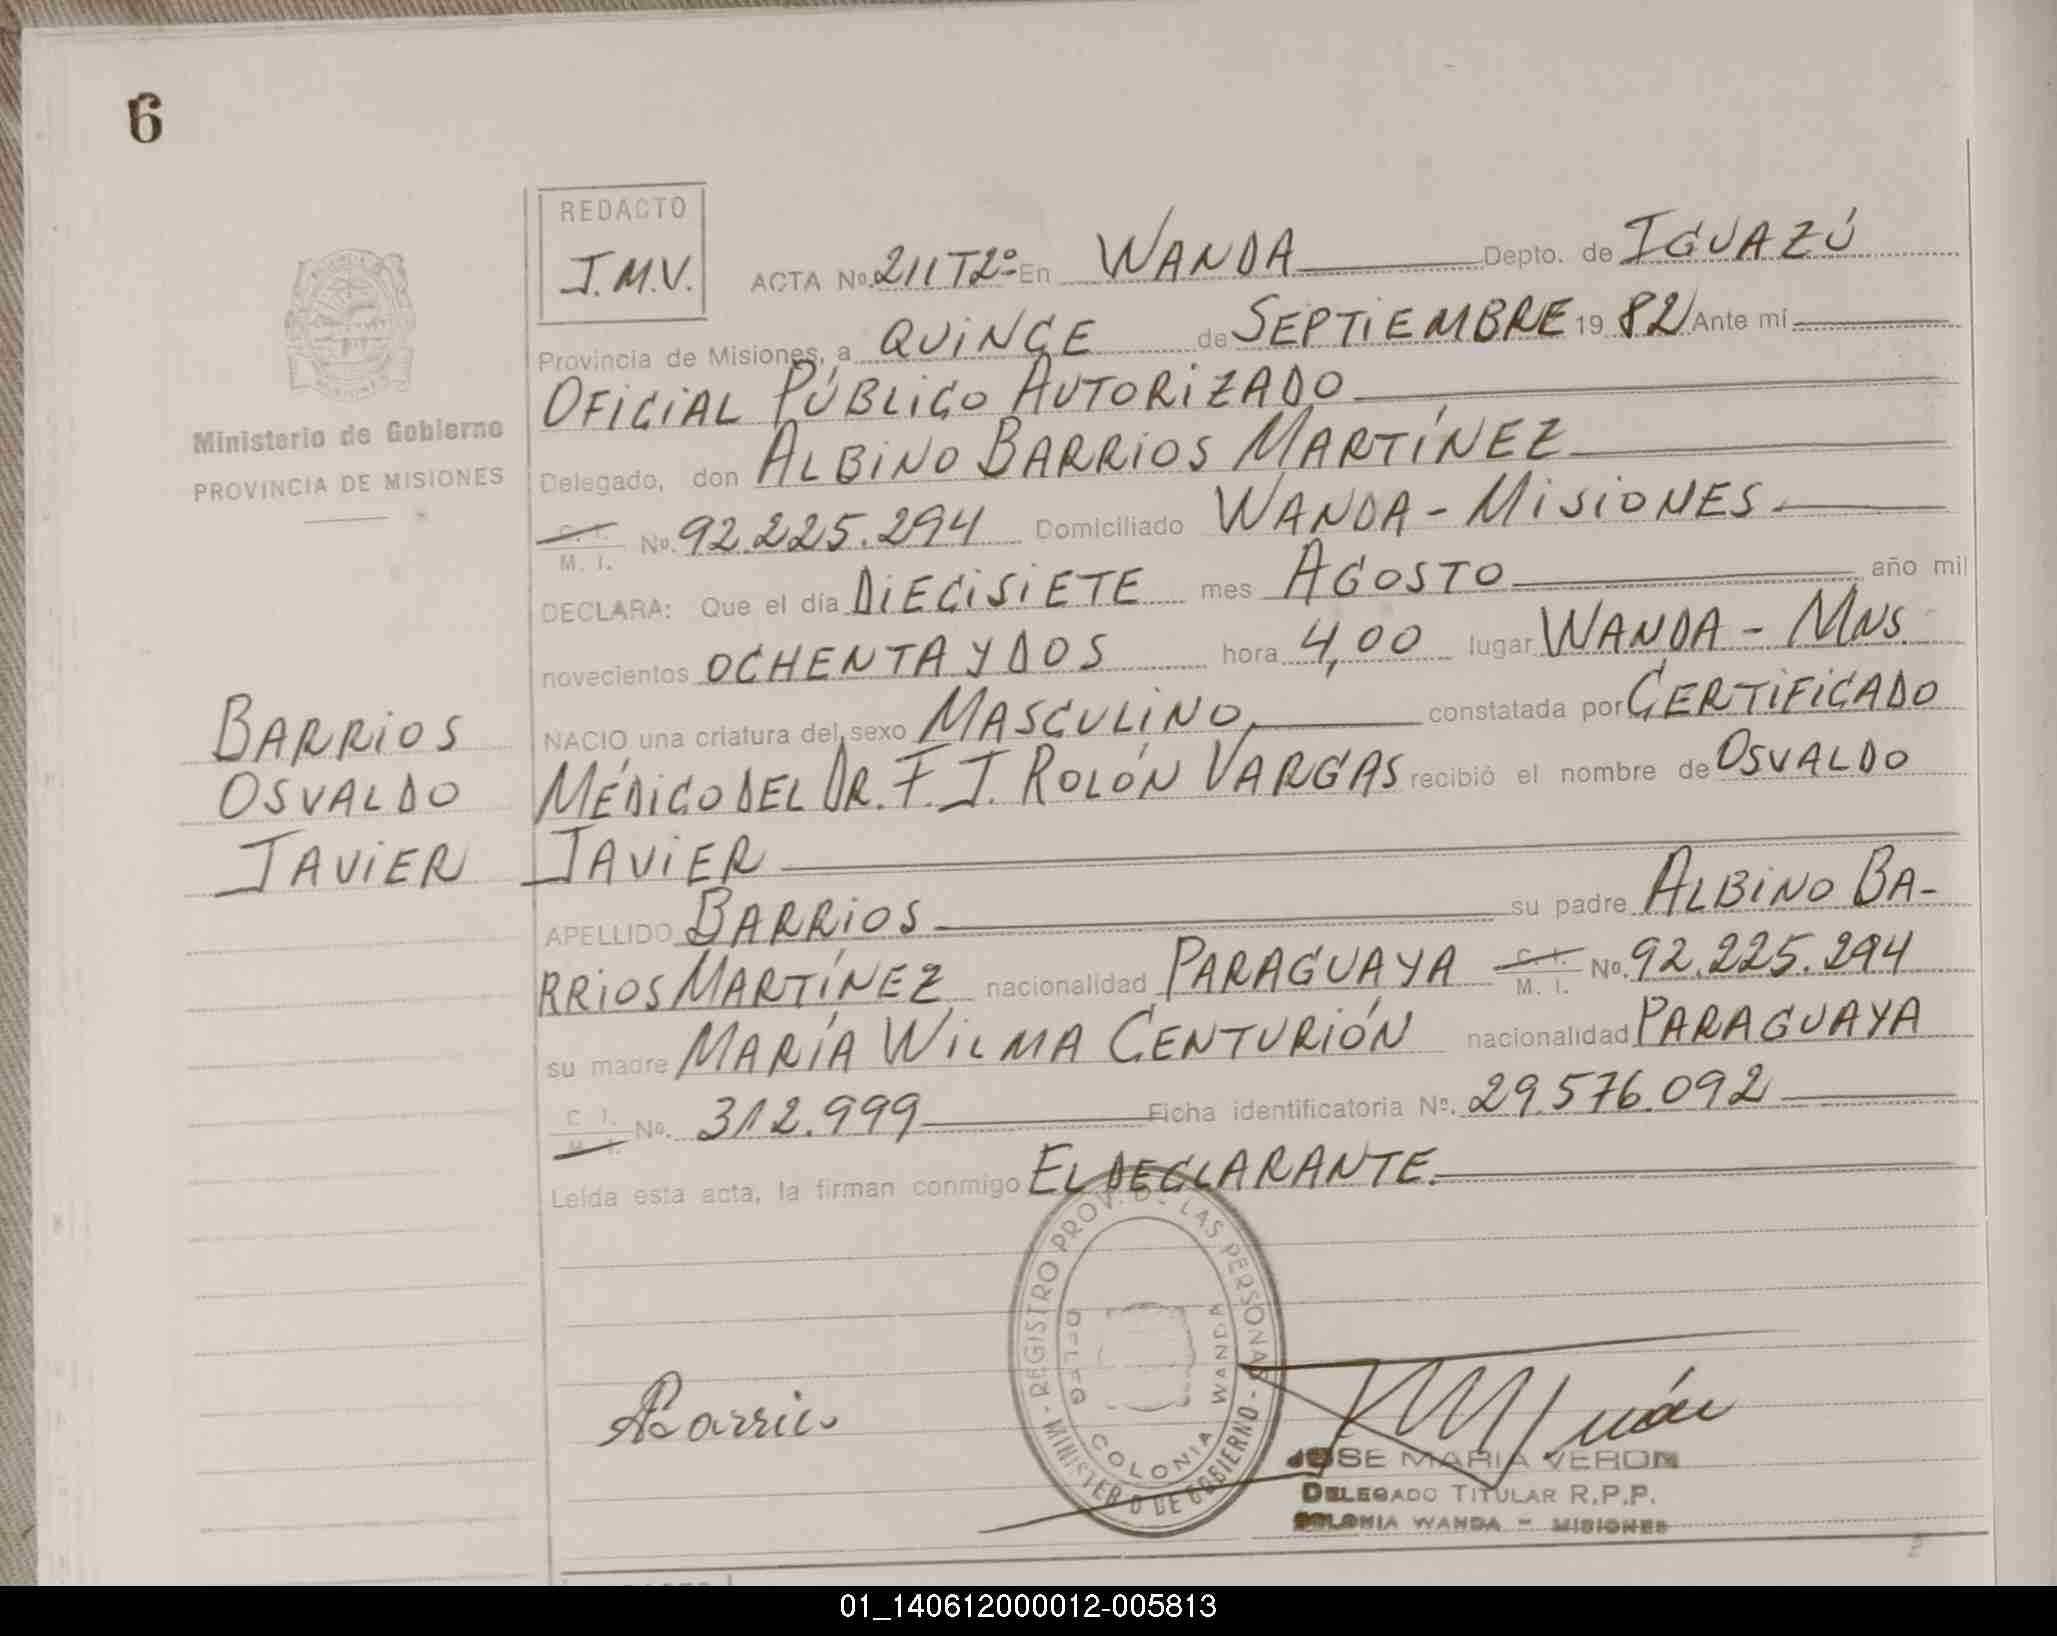 6
REDACTO
J.M.V.
ACTA No. 211 T2º En WANDA Depto. de IGUAZÚ
Provincia de Misiones, a QUINCE de SEPTIEMBRE 19 82 Ante mí
OFICIAL PÚBLICO AUTORIZADO
Delegado, don ALBINO BARRIOS MARTÍNEZ
C. I. M. I. No. 92.225.294 Domiciliado WANDA - MISIONES
DECLARA: Que el día DIECISIETE mes AGOSTO año mil
novecientos OCHENTA Y DOS hora 4,00 lugar WANDA - MNS.
NACIO una criatura del sexo MASCULINO, constatada por CERTIFICADO
MÉDICO DEL DR. F. J. ROLÓN VARGAS recibió el nombre de OSVALDO
JAVIER
APELLIDO BARRIOS su padre ALBINO BA-
RRIOS MARTÍNEZ nacionalidad PARAGUAYA C. I. M. I. No. 92.225.294
su madre MARÍA WILMA CENTURIÓN nacionalidad PARAGUAYA
C. I. M. I. No. 312.999 Ficha identificatoria Nº. 29.576.092
Leída esta acta, la firman conmigo EL DECLARANTE.
Ministerio de Gobierno
PROVINCIA DE MISIONES
BARRIOS
OSVALDO
JAVIER
REGISTRO PROV. D. LAS PERSONAS
- MINISTERIO DE GOBIERNO -
DELEG
COLONIA
WANDA
ABarrios
JOSE MARIA VERON
DELEGADO TITULAR R.P.P.
COLONIA WANDA - MISIONES
01_140612000012-005813